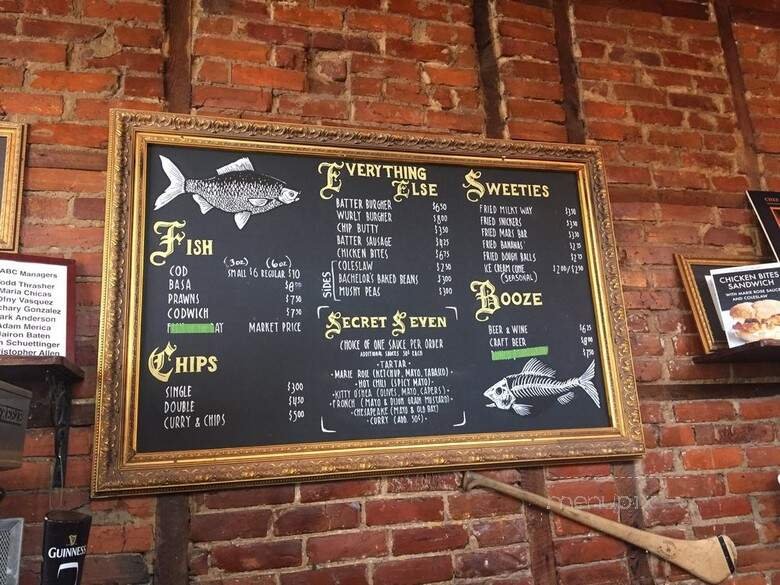 ABC Managers
odd Thrasher
Maria Chicas
Ofny Vasquez
chary Gonzalez
ark Anderson
Adam Merica
airon Baten
n Schuettinger
istopher Allen
FISH
(3oz) (6oz)
COD SMALL $6 REGULAR $10
BASA $8
PRAWNS $7.50
CODWICH $7.50
MARKET PRICE
CHIPS
SINGLE $3.00
DOUBLE $4.50
CURRY & CHIPS $5.00
EVERYTHING ELSE
BATTER BURGHER $6.50
WURLY BURGHER $8.00
CHIP BUTTY $3.50
BATTER SAUSAGE $4.25
CHICKEN BITES $6.75
SIDES
COLESLAW $2.50
BACHELOR'S BAKED BEANS $3.00
MUSHY PEAS $3.00
SECRET SEVEN
CHOICE OF ONE SAUCE PER ORDER
ADDITIONAL SAUCES 50¢ EACH
-TARTAR-
-MARIE ROSE (KETCHUP, MAYO, TABASCO)
-HOT CHILI (SPICY MAYO)-
-KITTY O'SHEA (OLIVES, MAYO, CAPERS)-
-FRONCH (MAYO & DIJON GRAIN MUSTARD)-
-CHESAPEAKE (MAYO & OLD BAY)
-CURRY (ADD. 50¢)-
SWEETIES
FRIED MILKY WAY $3.50
FRIED SNICKERS $3.50
FRIED MARS BAR $3.50
FRIED BANANAS $2.75
FRIED DOUGH BALLS $2.75
ICE CREAM CONE $2.00/$2.50
(SEASONAL)
BOOZE
BEER & WINE $6.25
CRAFT BEER $8.00
$7.50
CHICKEN BITES
SANDWICH
WITH MARIE ROSE SAUCE
AND COLESLAW
GUINNESS
menupix